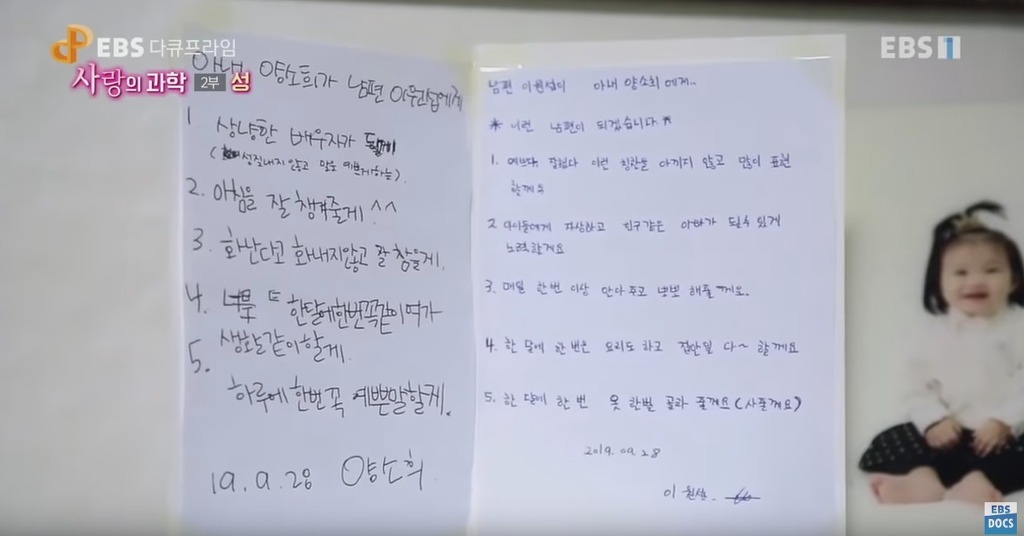 EBS 다큐프라임
사랑의 과학 2부 성
EBS 1
아내 양소희가 남편 에게
1 상냥한 배우자가 될게
( 성질내지 않고 말을 예쁘게하는).
2. 아침을 잘 챙겨줄게 ^^
3. 화난다고 화내지않고 잘 참을게.
4. 한달에한번꼭같이여가
생활같이할게.
5.
하루에 한번 꼭 예쁜말할게.
19. 9. 28 양소희
남편 이원섭이 아내 양소희에게..
* 이런 남편이 되겠습니다 *
1. 예쁘다, 잘했다 이런 칭찬을 아끼지 않고 많이 표현
할께요
2. 아이들에게 자상하고 친구같은 아빠가 될수 있게
노력할게요
3. 매일 한번 이상 안아주고 뽀뽀 해줄께요.
4. 한 달에 한 번은 요리도 하고 집안일 다~ 할께요
5. 한 달에 한 번 옷 한벌 골라 줄께요(사줄께요)
2019. 09. 28
이원섭.
EBS
DOCS